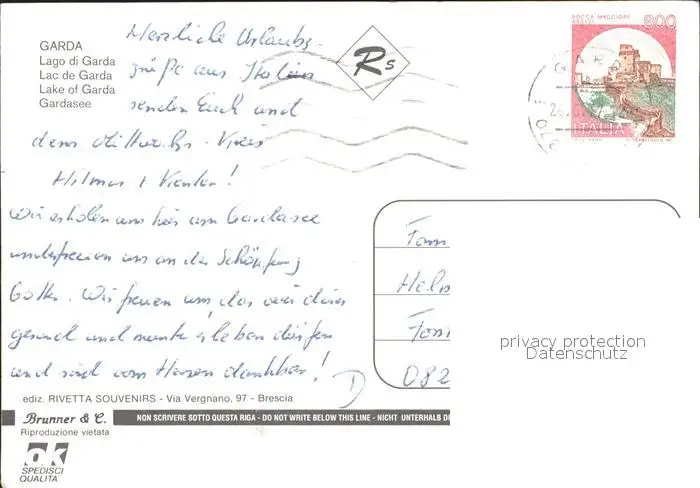 GARDA
Lago di Garda
Lac de Garda
Lake of Garda
Gardasee
Herzliche Urlaubs-
grüße aus Italien
senden Euch und
dem Mittwochs-Kreis
Hilmar +
Wir erholen uns hier am Gardasee
und freuen uns an der Schöpfung
Gottes. Wir freuen uns, das wir dies
gesund und munter erleben dürfen
und sind von Herzen dankbar!
Rs
ROCCA MAGGIORE
ASSISI
800
ITALIA
GARDA
Fam
Helm
Fon
082
privacy protection
Datenschutz
ediz. RIVETTA SOUVENIRS - Via Vergnano, 97 - Brescia
Brunner & C.
Riproduzione vietata
NON SCRIVERE SOTTO QUESTA RIGA - DO NOT WRITE BELOW THIS LINE - NICHT UNTERHALB DI
ok
SPEDISCI
QUALITA'